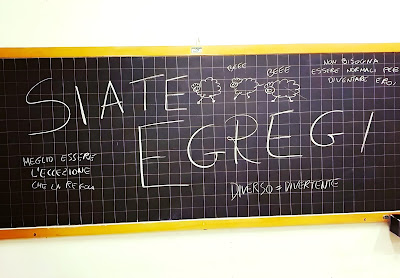 SIATE
EGREGI
BEEE
BEEE
NON BISOGNA
ESSERE NORMALI PER
DIVENTARE EROI
MEGLIO ESSERE
L'ECCEZIONE
CHE LA REGOLA
DIVERSO = DIVERTENTE